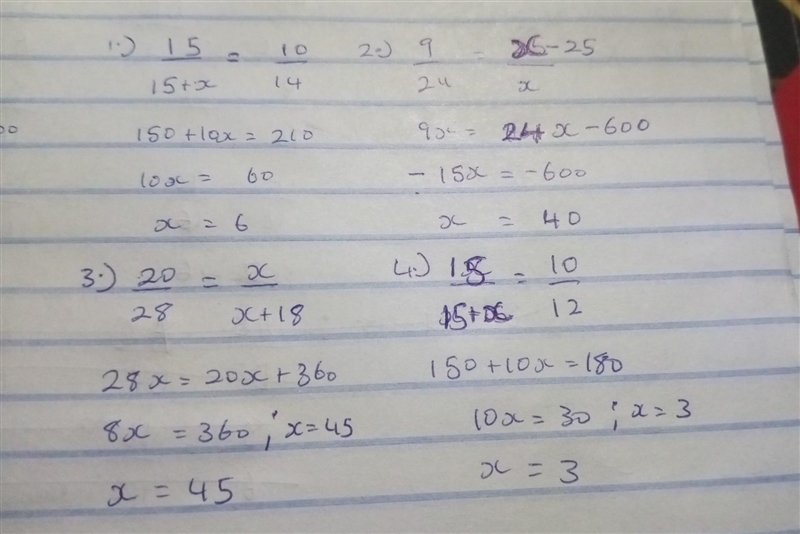 1.) 15/15+x = 10/14
150+10x = 210
10x = 60
x = 6
2.) 9/24 = x-25/x
9x = 24x-600
-15x = -600
x = 40
3.) 20/28 = x/x+18
28x = 20x+360
8x = 360 ; x=45
x = 45
4.) 15/15+x = 10/12
150+10x = 180
10x = 30 ; x=3
x = 3